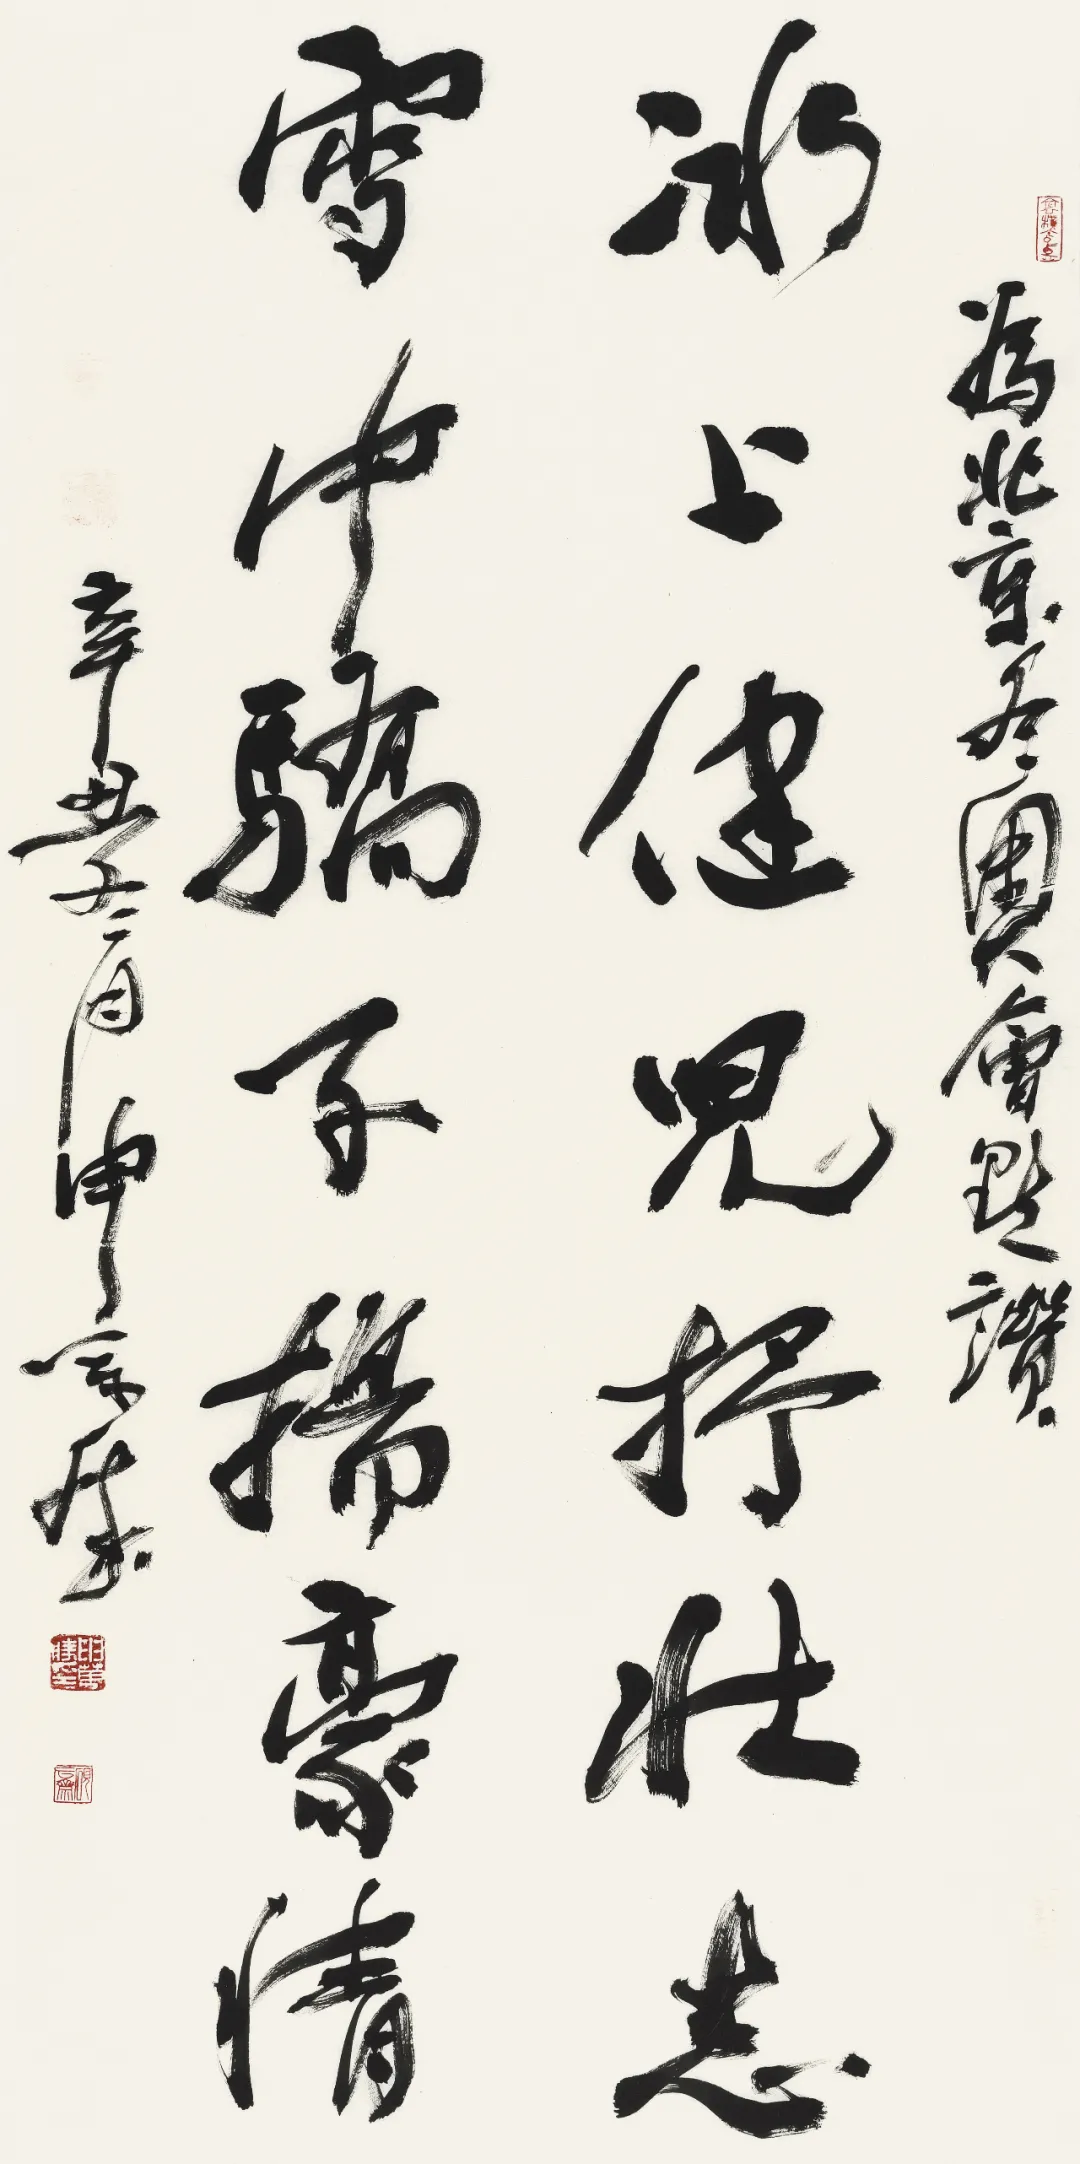 為北京冬奧會點讚
冰上健兒抒壯志
雪中驕子攜豪情
辛丑十二月申萬勝